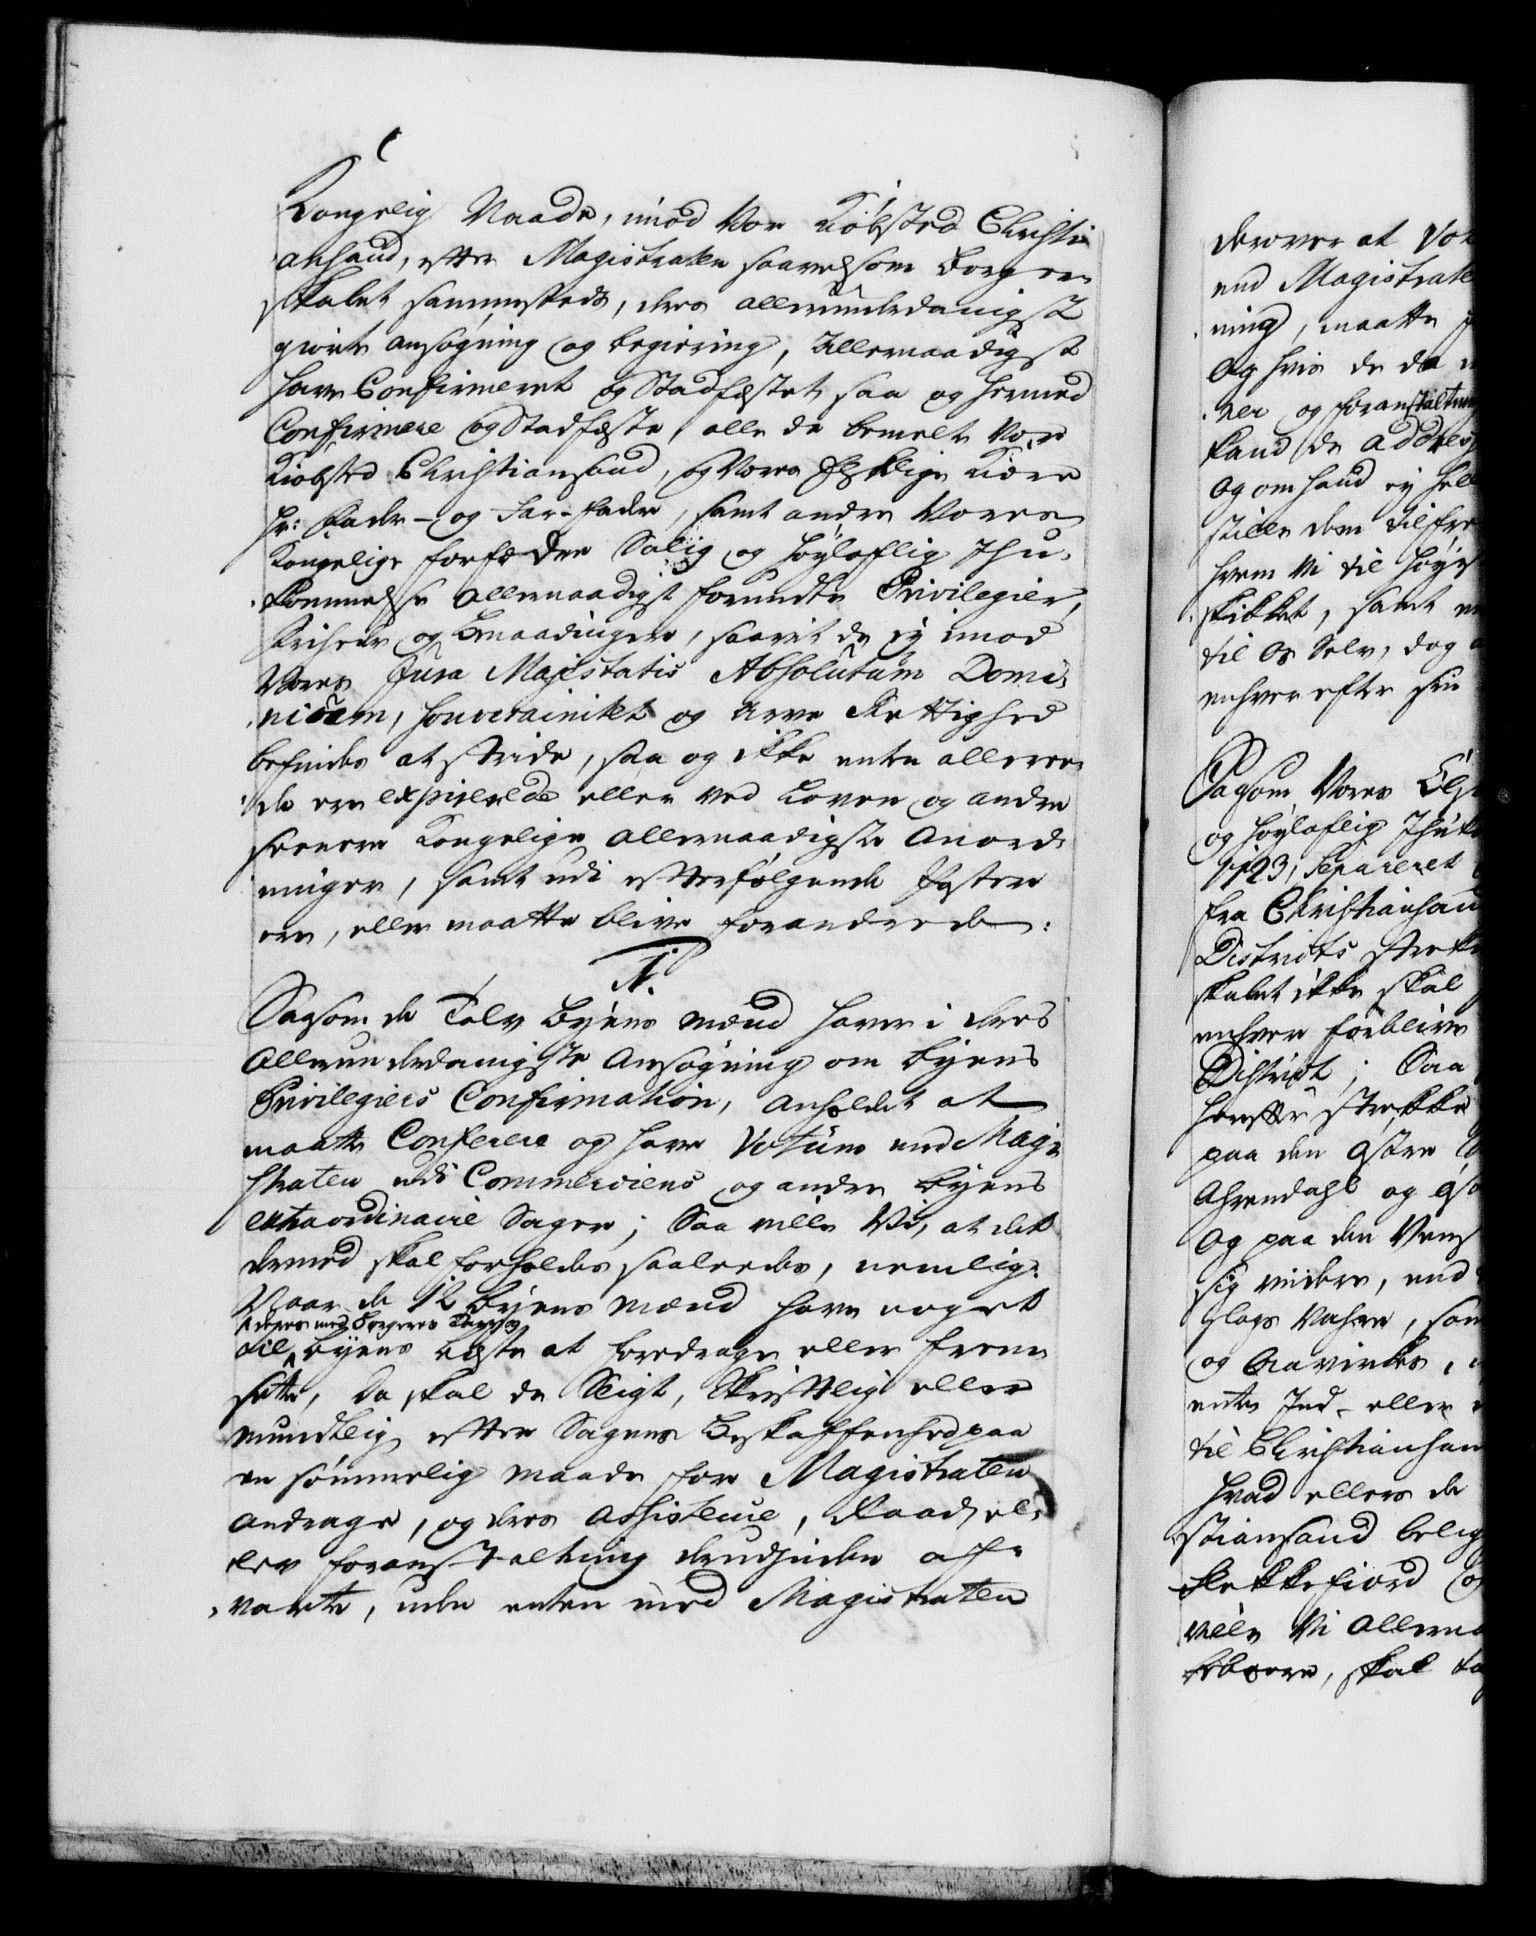 Kongelig Naade, imod Vor Kiöbsted Christi
ansand, efter Magistraten saavelsom Borger
skabet sammesteds, deres allerunderdanigst
giorte ansøgning og begiering, Allernaadigst
have Confirmeret og Stadfæstet saa og hermed
Confirmere og Stadfæste, alle de bemelte Vor
Kiøbsted Christiansand, og Vores Elskelige Kiere
Hr: Fader- og Far-fader, samt andre Vores
Kongelige forfædre Salig og Høyloflig Ihu-
kommelse Allernaadigst forundte Privilegier,
friheder og Benaadinger, saavit de ey imod
Vores Jura Majestatis Absolutum Domi-
nium, souverainitet og Arve Rettighed
befindes at stride, saa og ikke enten allere-
de ere expirerede eller ved Loven og andre
seenere Kongelige Allernaadigste Anord-
ninger, samt udi efterfølgende Poster
ere, eller maatte blive forandrede:
1.
Saasom de Tolv Byens Mænd haver i deres
Allerunderdanigste Ansøgning om Byens
Privilegiers Confirmation, anholdet at
maatte Conferere og have Votum med Magi-
straten udi Commerciens og andre Byens
extraordinaire Sager; Saa ville Vi, at det
dermed skal forholdes saaledes, nemlig:
Naar de 12 Byens Mænd have noget
til Byens beste at foredrage eller frem
sette, da skal de Sligt, Skriftlig eller
mundtlig efter Sagens Beskaffenhed paa
en sømmelig maade for Magistraten
andrage, og deres Assistence, Raad, el-
ler foranstaltning derudinden aff-
varte, uden enten med Magistraten
derover at Vo
end Magistrate
ning, maatte
og hvis de da
ner og foranstaltning
kand de addres
og om hand ey
stille dem tilfre
hvem Vi til Høye
skikket, samt
til Os Selv, dog
enhver efter sin
Saasom Vores
og Høyloflig Ihuko
1723, Separeret
fra Christiansan
Districts
skabet ikke skal
enhver forblive
District; Saa
herefter strekke
paa den Østre
Ahrendahl og
og paa den Vens
sig videre, end
slags Vahre, som
og
enten Ind- eller
til Christiansan
hvad ellers de
stiansand belig
Flekkefiord
ville Vi Allerna
skal